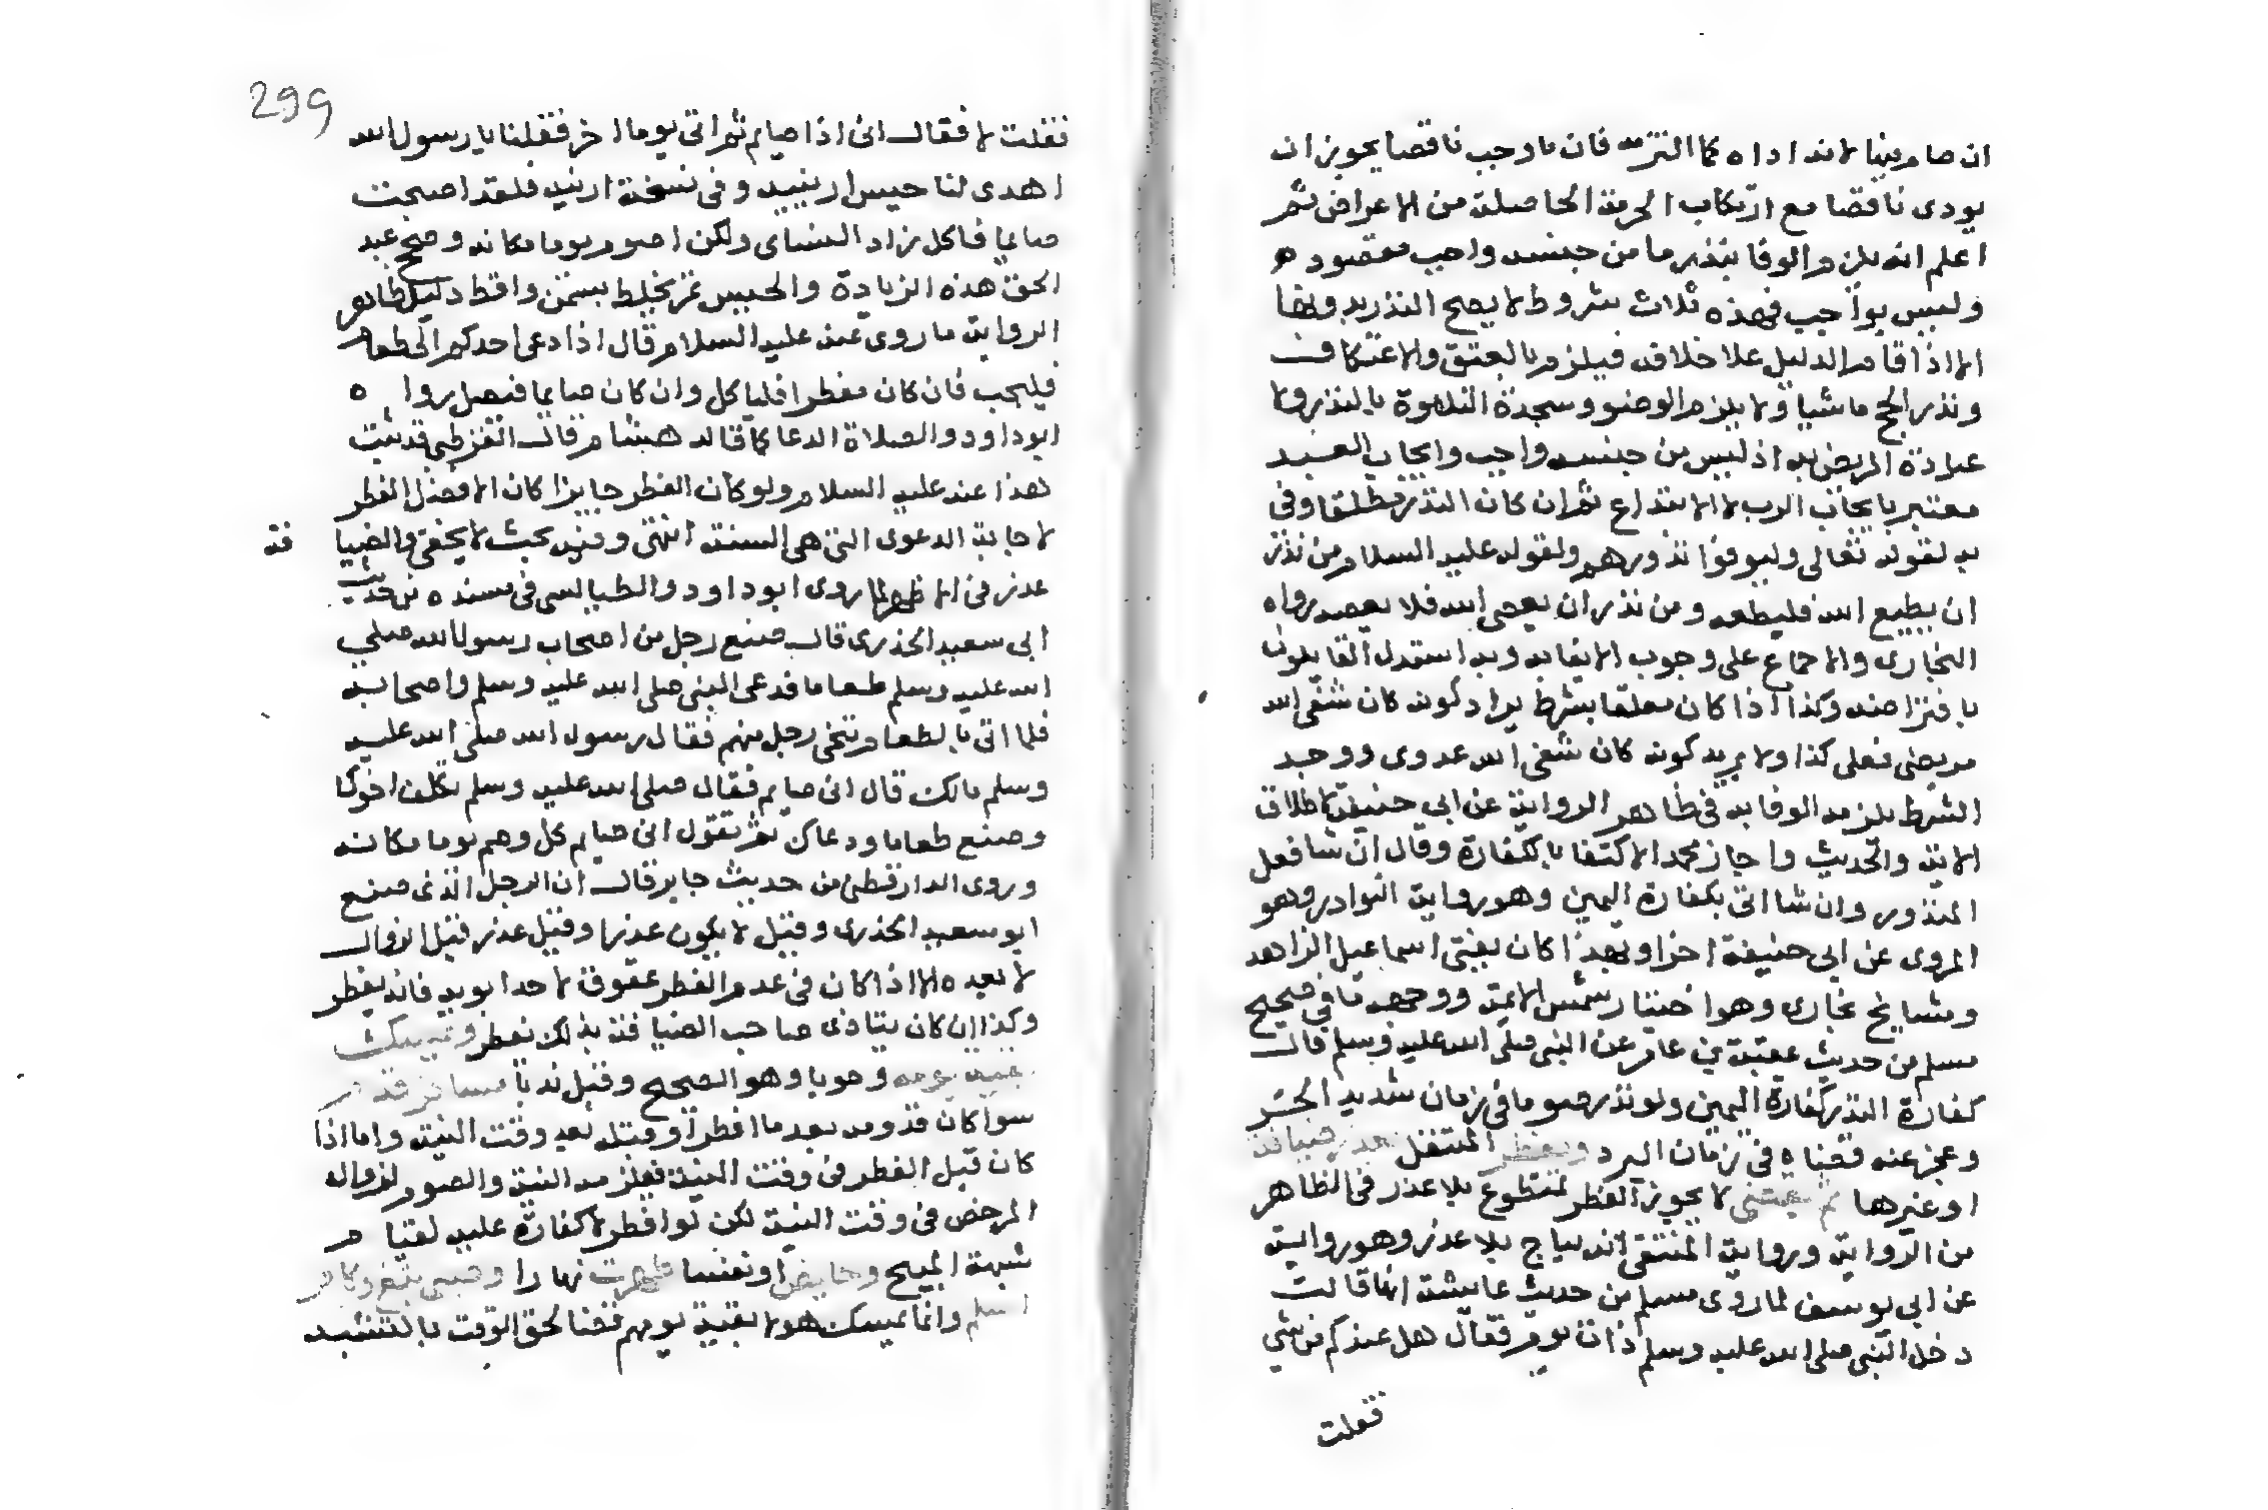 ان صام فيها لانه اداه كما التزمه فان ما وجب ناقصا يجوز ان
يودى ناقصا مع ارتكاب الحرمة الحاصلة من الاعراض ثم
اعلم انه يلزم الوفا بنذر ما من جنسه واجب مقصود
وليس بواجب فهذه ثلاث شروط لا يصح النذر بدونها
الا اذا قام الدليل علا خلافه فيلزم بالعتق والاعتكاف
ونذر الحج ماشيا ولا يلزم الوضو وسجدة التلاوة بالنذر ولا
عيادة المريض به اذ ليس من جنسه واجب وايجاب العبد
معتبر بايجاب الرب لا الابتداع ثم ان كان النذر مطلقا وفى
به لقوله تعالى وليوفوا نذورهم ولقوله عليه السلام من نذر
ان يطيع الله فليطعه ومن نذر ان يعصى الله فلا يعصه رواه
البخارى والاجماع على وجوب الايفا به وبه استدل القايلون
بافتراضه وكذا اذا كان معلقا بشرط يراد كونه كان شفى الله
مريضى فعلى كذا ولا يريد كونه كان شفى الله عدوى ووجد
الشرط يلزمه الوفا به فى ظاهر الرواية عن ابى حنيفة لاطلاق
الاية والحديث واجاز محمد الاكتفا بالكفارة وقال ان شا فعل
المنذور وان شا اتى بكفارة اليمين وهو رواية النوادر وهو
المروى عن ابى حنيفة اخرا وبهذا كان يفتى اسماعيل الزاهد
ومشايخ بخارى وهو اختيار شمس الايمة ووجهه ما فى صحيح
مسلم من حديث عقبة بن عامر عن النبى صلى الله عليه وسلم قال
كفارة النذر كفارة اليمين ولو نذر صوما فى زمان شديد الحر
وعجز عنه قضاه فى زمان البرد ويفطر المتنفل بعذر ضيافة
او غيرها ثم يقضى لا يجوز الفطر لمتطوع بلا عذر فى الظاهر
من الرواية ورواية المنتقى انه يباح بلا عذر وهو رواية
عن ابى يوسف لما روى مسلم من حديث عايشة انها قالت
دخل النبى صلى الله عليه وسلم ذات يوم فقال هل عندكم من شى
فقلت
299
فقلت لا فقال انى اذا صايم ثم اتى يوما اخر فقلنا يا رسول الله
اهدى لنا حيس ارينيه وفى نسخة ارنيه فلقد اصبحت
صايما فاكل زاد النساى ولكن اصوم يوما مكانه وصحح عبد
الحق هذه الزيادة والحيس تمر يخلط بسمن واقط دليل ظاهر
الرواية ما روى عنه عليه السلام قال اذا دعى احدكم الى طعام
فليجب فان كان مفطرا فلياكل وان كان صايما فليصل رواه
ابو داود والصلاة الدعا كما قاله هشام قال القرطبى قد ثبت
هذا عنه عليه السلام ولو كان الفطر جايزا كان الافضل الفطر
لاجابة الدعوى التى هى السنة انتهى وفيه بحث لا يخفى والضيا
فة
عذر فى الاظهر لما روى ابو داود والطيالسى فى مسنده من حديث
ابى سعيد الخذرى قال صنع رجل من اصحاب رسول الله صلى
الله عليه وسلم طعاما فدعى النبى صلى الله عليه وسلم واصحابه
فلما اتى بالطعام تنحى رجل منهم فقال رسول الله صلى الله عليه
وسلم مالك قال انى صايم فقال صلى الله عليه وسلم تكلف اخوك
وصنع طعاما ودعاك ثم تقول انى صايم كل وصم يوما مكانه
وروى الدارقطنى من حديث جابر قال ان الرجل الذى صنع
ابو سعيد الخذرى وقيل لا يكون عذرا وقيل عذر قبل الزوال
لا بعده الا اذا كان فى عدم الفطر عقوق لاحد ابويه فانه يفطر
وكذا ان كان يتاذى صاحب الضيافة بذلك يفطر ويمسك
بقية يومه وجوبا وهو الصحيح وقيل ندبا مسافر قدم
سوا كان قدومه بعد ما افطر او قبله بعد وقت النية واما اذا
كان قبل الفطر فى وقت النية فيلزمه النية والصوم لزواله
المرخص فى وقت النية لكن لو افطر لا كفارة عليه لقيام
شبهة المبيح وحايض او نفسا طهرت نهارا وصبى بلغ وكافر
اسلم وانما يمسك هولا بقية يومهم قضا لحق الوقت بالتشبه